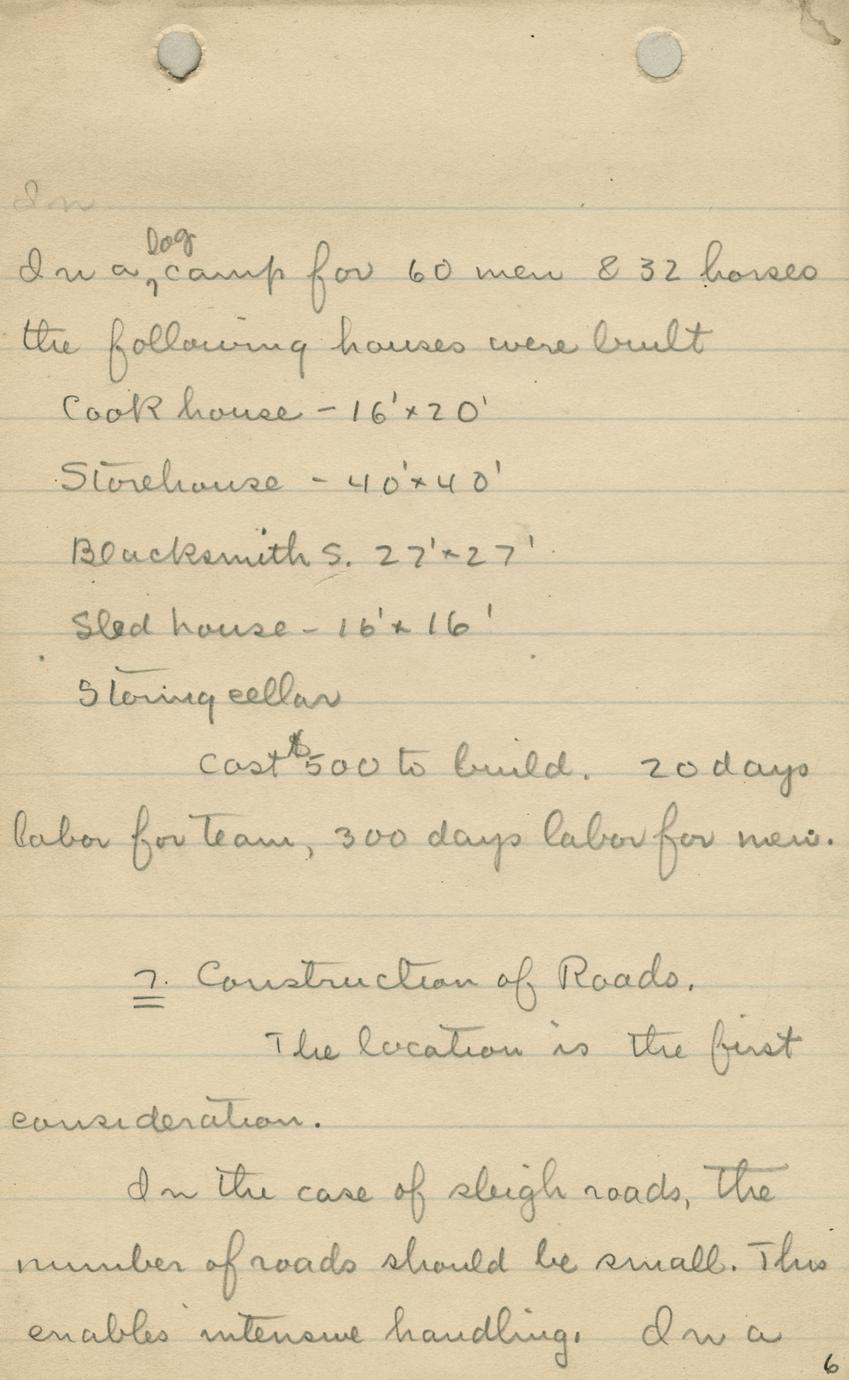 In
In a log camp for 60 men & 32 horses
the following houses were built
Cook house - 16'x20'
Storehouse - 40'x40'
Blacksmith S. 27'x27'
Sled house - 16'x16'
Storing cellar
Cost $500 to build. 20 days
labor for team, 300 days labor for men.
7. Construction of Roads.
The location is the first
consideration.
In the case of sleigh roads, the
number of roads should be small. This
enables intensive handling. In a
6